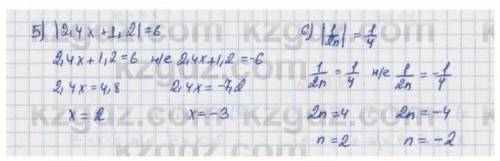 5) |2,4x+1,2|=6
2,4x+1,2=6 н/е 2,4x+1,2=-6
2,4x=4,8 2,4x=-7,2
x=2 x=-3
6) |1/2n|=1/4
1/2n=1/4 н/е 1/2n=-1/4
2n=4 2n=-4
n=2 n=-2